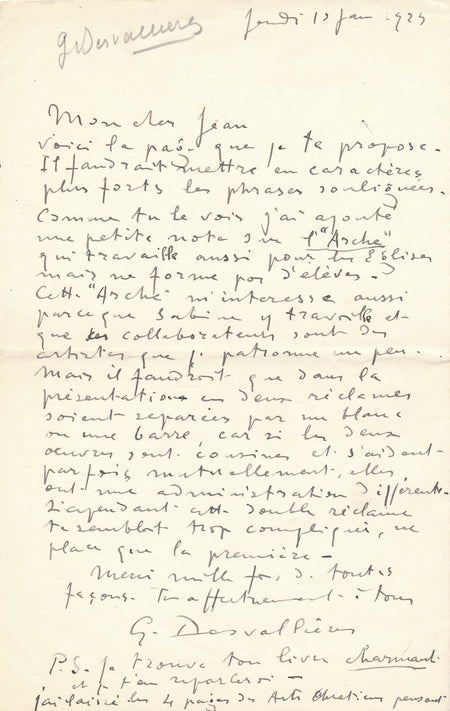 G Desvallières
Jeudi 15 jan 1925
Mon cher Jean
voici la page que je te propose.
Il faudrait mettre en caractères
plus forts les phrases soulignées.
Comme tu le vois j'ai ajouté
une petite note sur l'"Arche"
qui travaille aussi pour les Eglises
mais ne forme pas d'élèves.
Cette "Arche" m'interesse aussi
parceque Sabine y travaille et
que ses collaborateurs sont des
artistes que je patronne un peu.
Mais il faudrait que dans la
présentation les deux réclames
soient separées par un blanc
ou une barre, car si les deux
œuvres sont cousines et s'aident
parfois mutuellement, elles
ont une administration différente.
Si cependant cette double réclame
te semblait trop compliquée, ne
place que la première –
Merci mille fois de toutes
façons. Ton affectueusement à tous
G. Desvallières
P.S. je trouve ton livre charmant
et t'en reparlerai –
j'ai laissé les 4 pages des Arts Chretiens pensant